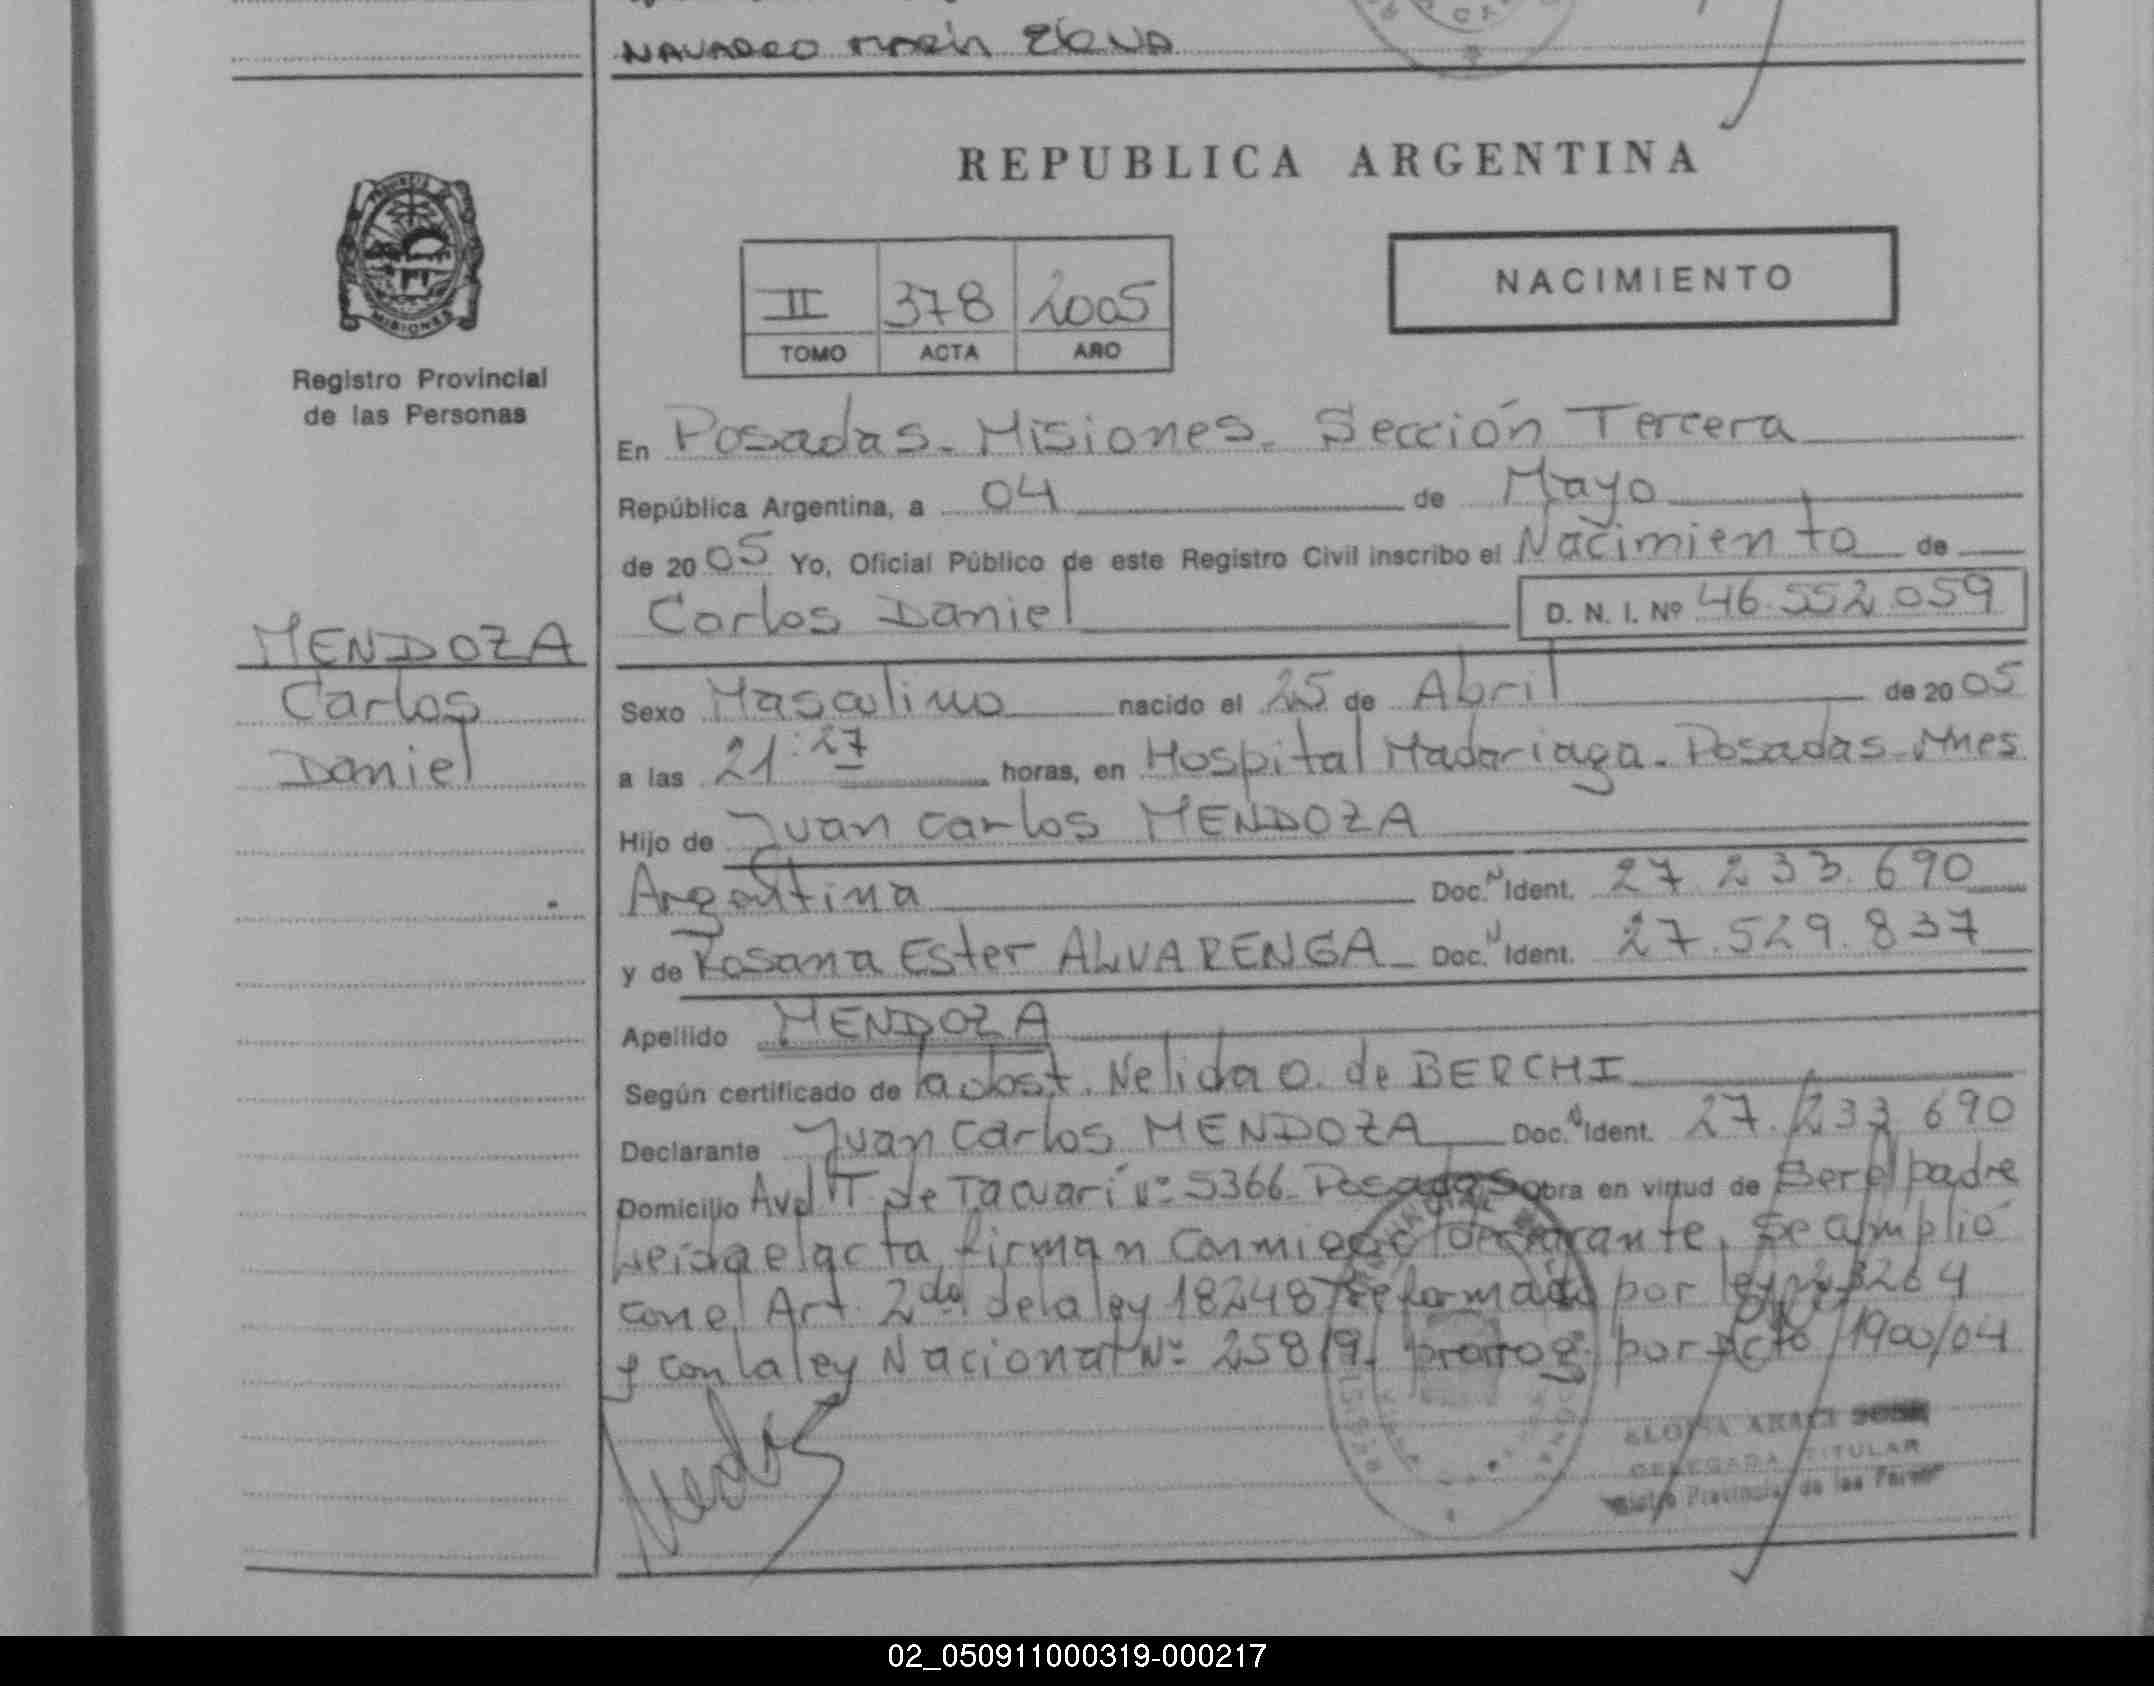 NAVARRO
REPUBLICA ARGENTINA
MISIONES
II 378 2005
TOMO ACTA AÑO
NACIMIENTO
Registro Provincial
de las Personas
En Posadas - Misiones - Sección Tercera
República Argentina, a 04 de Mayo
de 2005 Yo, Oficial Público de este Registro Civil inscribo el Nacimiento de
Carlos Daniel D. N. I. Nº 46.552.059
MENDOZA
Carlos
Daniel
Sexo Masculino nacido el 25 de Abril de 2005
a las 21:27 horas, en Hospital Madariaga - Posadas - Mnes
Hijo de Juan Carlos MENDOZA
Argentina Doc. Ident. 27.233.690
y de Rosana Ester ALVARENGA Doc. Ident. 27.529.837
Apellido MENDOZA
Según certificado de la obst. Nelida O. de BERCHI
Declarante Juan Carlos MENDOZA Doc. Ident. 27.233.690
Domicilio Avd T. de Tacuarí Nº 5366 Posadas obra en virtud de Ser el padre
Leida el acta, firman conmigo declarante, Se amplió
con el Art. 2do de la ley 18248 reformado por ley 23264
y con la ley Nacional Nº 25819 prorrog. por Dcto 1900/04
DELEGADA TITULAR
Provincial de las
02_050911000319-000217